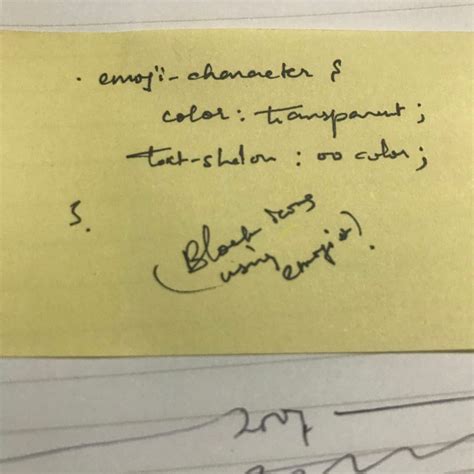 . emoji-character {
color: transparent;
text-shadow : 0 0 color;
}.
(Black icons
using
emojis).